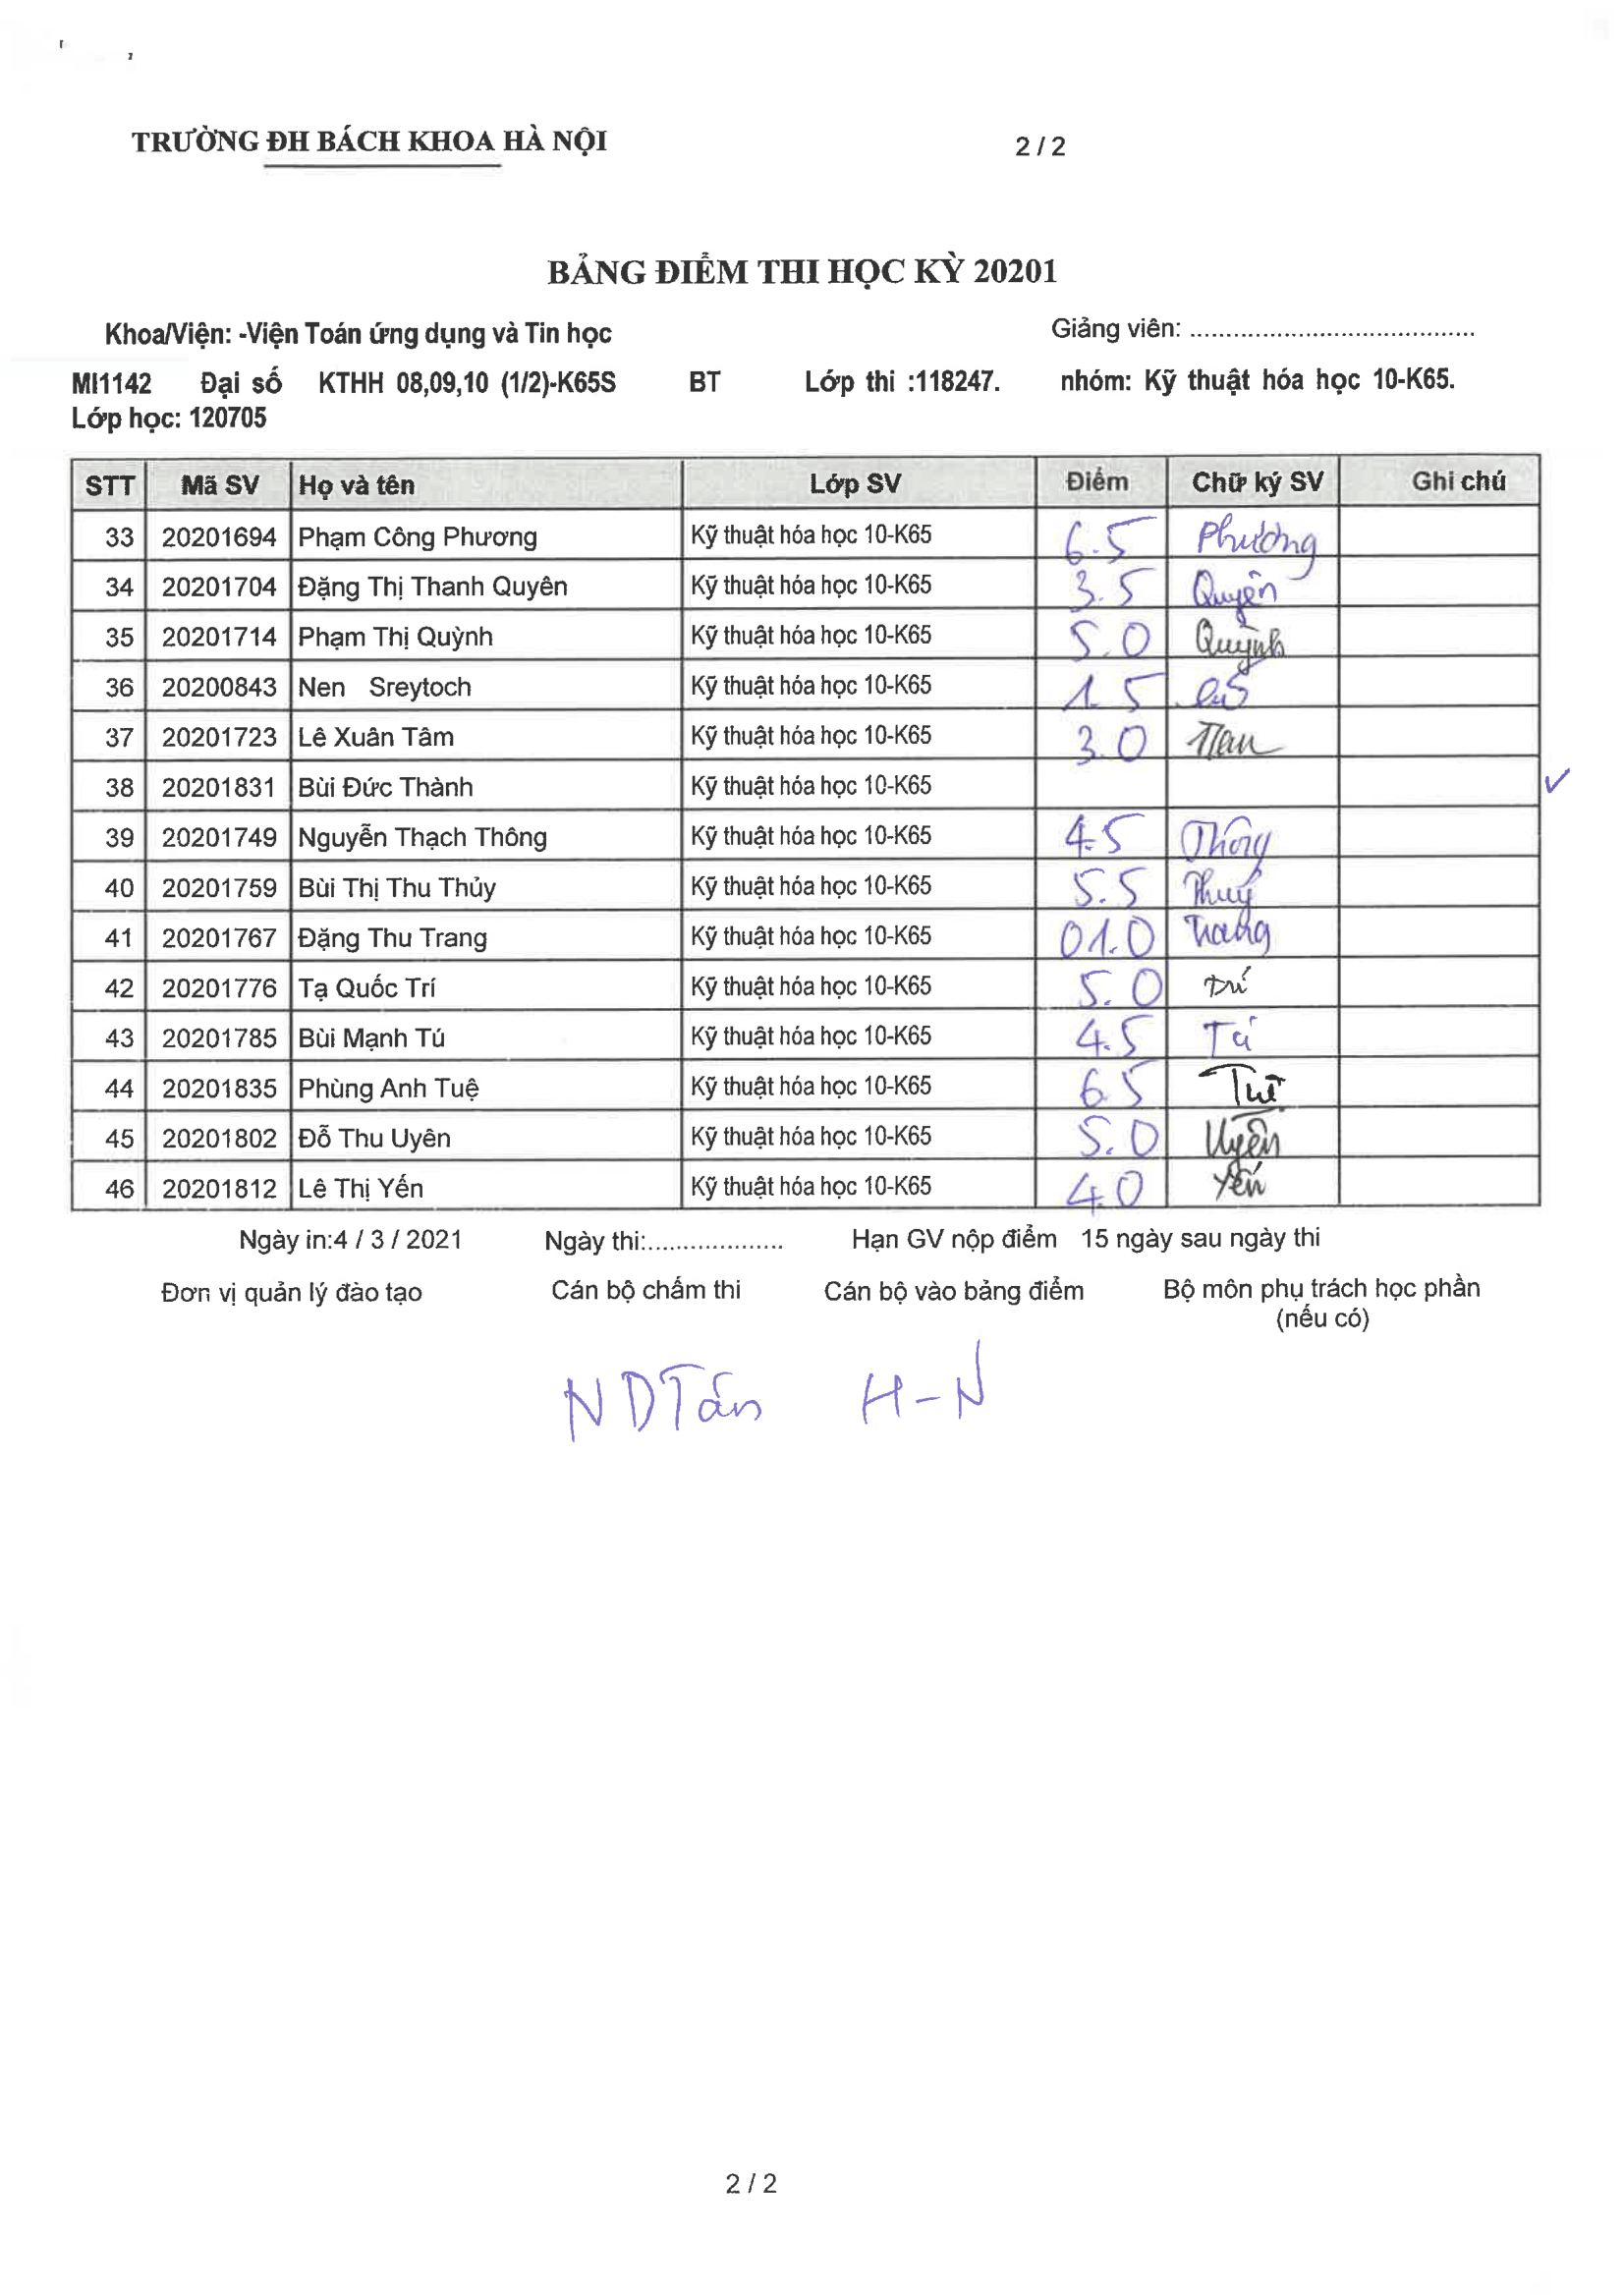 TRƯỜNG ĐH BÁCH KHOA HÀ NỘI 2 / 2
BẢNG ĐIỂM THI HỌC KỲ 20201
Khoa/Viện: -Viện Toán ứng dụng và Tin học Giảng viên: ......................................
MI1142 Đại số KTHH 08,09,10 (1/2)-K65S BT Lớp thi :118247. nhóm: Kỹ thuật hóa học 10-K65.
Lớp học: 120705
STT Mã SV Họ và tên Lớp SV Điểm Chữ ký SV Ghi chú
33 20201694 Phạm Công Phương Kỹ thuật hóa học 10-K65 6.5 Phương
34 20201704 Đặng Thị Thanh Quyên Kỹ thuật hóa học 10-K65 3.5 Quyên
35 20201714 Phạm Thị Quỳnh Kỹ thuật hóa học 10-K65 5.0 Quỳnh
36 20200843 Nen Sreytoch Kỹ thuật hóa học 10-K65 1.5
37 20201723 Lê Xuân Tâm Kỹ thuật hóa học 10-K65 3.0
38 20201831 Bùi Đức Thành Kỹ thuật hóa học 10-K65 ✓
39 20201749 Nguyễn Thạch Thông Kỹ thuật hóa học 10-K65 4.5 Thông
40 20201759 Bùi Thị Thu Thủy Kỹ thuật hóa học 10-K65 5.5 Thuỷ
41 20201767 Đặng Thu Trang Kỹ thuật hóa học 10-K65 01.0 Trang
42 20201776 Tạ Quốc Trí Kỹ thuật hóa học 10-K65 5.0 Trí
43 20201785 Bùi Mạnh Tú Kỹ thuật hóa học 10-K65 4.5 Tú
44 20201835 Phùng Anh Tuệ Kỹ thuật hóa học 10-K65 6.5
45 20201802 Đỗ Thu Uyên Kỹ thuật hóa học 10-K65 5.0 Uyên
46 20201812 Lê Thị Yến Kỹ thuật hóa học 10-K65 4.0 Yến
Ngày in:4 / 3 / 2021 Ngày thi:................... Hạn GV nộp điểm 15 ngày sau ngày thi
Đơn vị quản lý đào tạo Cán bộ chấm thi Cán bộ vào bảng điểm Bộ môn phụ trách học phần
(nếu có)
NDTấn H-N
2 / 2